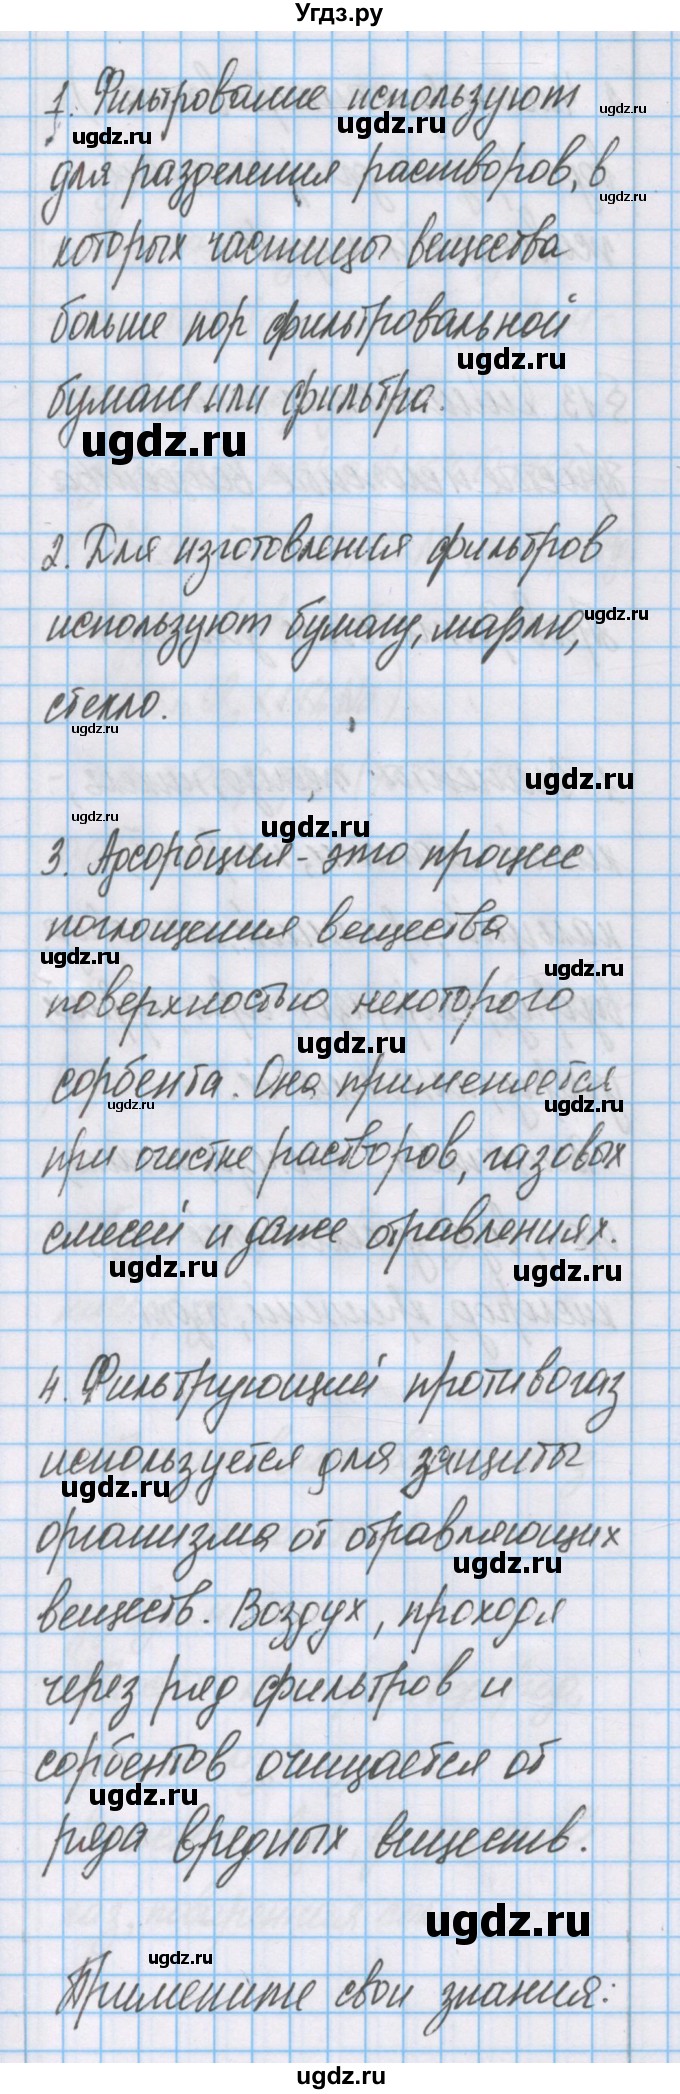 Угдз.ру
1. Фильтрование используют
ugdz.ru
ugdz.ru
ugdz.ru
для разделения растворов, в
ugdz.ru
которых частицы вещества
больше пор фильтровальной
ugdz.ru
бумаги или фильтра.
ugdz.ru
2. Для изготовления фильтров
используют бумагу, марлю,
ugdz.ru
стекло.
ugdz.ru
ugdz.ru
ugdz.ru
ugdz.ru
3. Адсорбция - это процесс
поглощения вещества
ugdz.ru
ugdz.ru
поверхностью некоторого
ugdz.ru
сорбента. Она применяется
ugdz.ru
ugdz.ru
при очистке растворов, газовых
смесей и даже отравлениях.
ugdz.ru
ugdz.ru
4. Фильтрующий противогаз
используется для защиты
ugdz.ru
организма от отравляющих
ugdz.ru
веществ. Воздух, проходя
через ряд фильтров и
сорбентов очищается от
ugdz.ru
ряда вредных веществ.
ugdz.ru
ugdz.ru
Примените свои знания:
ugdz.ru